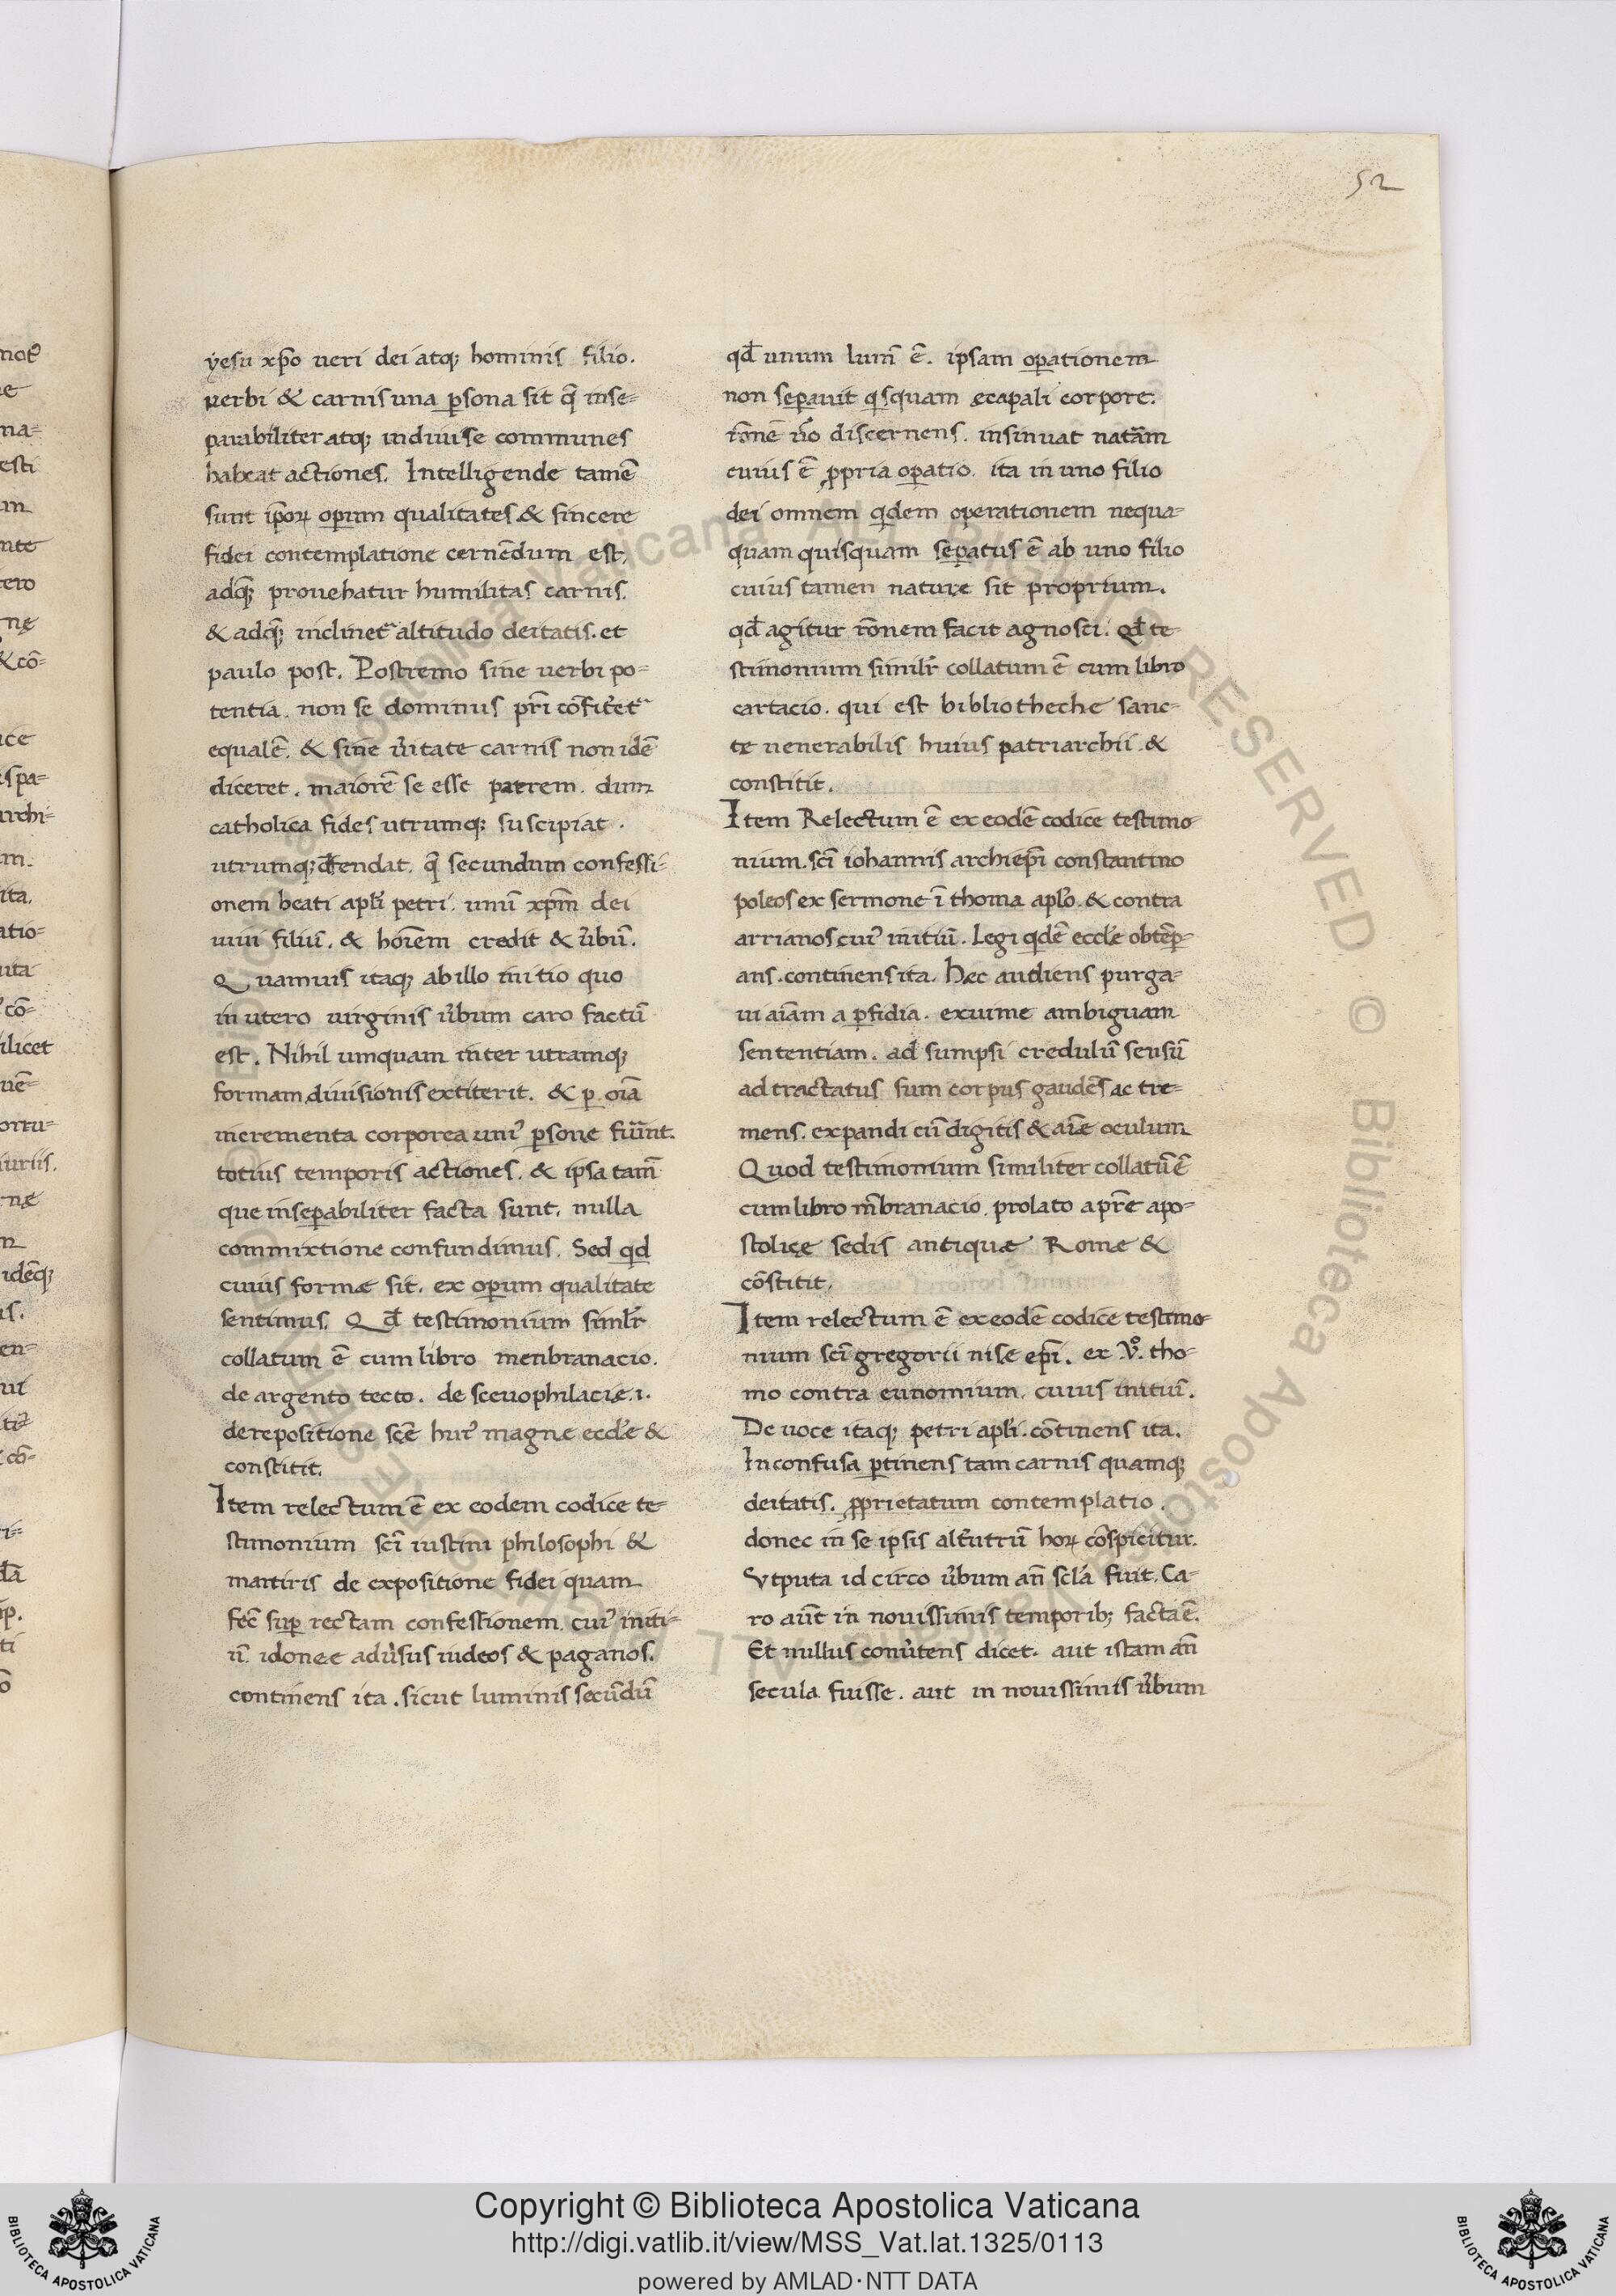 52
yesu xp̄o ueri dei atq; hominis filio.
uerbi & carnis una p̱sona sit q̄ inse=
parabiliter atq; indiuise communes
habeat actiones. Intelligende tamē
sunt ip̄oꝝ op̱um qualitates & sincere
fidei contemplatione cernēdum est,
adq̄; prouehatur humilitas carnis.
& adq̄; inclinet᷑ altitudo deitatis. et
paulo post. Postremo sine uerbi po=
tentia. non se dominus pr̄i cōfit̄et᷑
equalē. & sine ūitate carnis non idē
diceret. maiorē se esse patrem. dum
catholica fides utrumq; suscipiat.
utrumq; dꝭfendat. q̄ secundum confessi=
onem beati apl̄i petri. unū xp̄m dei
uiui filiū. & hoīem credit & ūbū.
Quamuis itaq; ab illo initio quo
in utero uirginis ūbum caro factū
est. Nihil umquam inter utramq;
formam diuisionis extiterit. & ꝑ oīa
incrementa corporea uniꝰ ꝑsone fūnt.
totius temporis actiones. & ipsa tam̄
que insepabiliter facta sunt. nulla
commixtione confundimus. Sed qd
cuius formæ sit. ex opum qualitate
sentimus. Qd̄ testimonium simlr̄
collatum ē cum libro menbranacio.
de argento tecto. de sceuophilacie.i.
de repositione scē huiꝰ magne eccl̄e &
constitit.
Item relectum ē ex eodem codice te=
stimonium scī iustini philosophi &
martiris de expositione fidei quam
fec̄ suꝑ rectam confessionem. cuiꝰ initi=
ū. idonee adūsus iudeos & paganos.
continens ita. sicut luminis secūdū
qd̄ unum lum̄ ē. ipsam oꝑationem
non seꝑauit qsquam ecapali corpore.
rōnē ūo discernens. insinuat natām
cuius ē ꝓpria oꝑatio. ita in uno filio
dei omnem qdem operationem nequa=
quam quisquam seꝑatus ē ab uno filio
cuius tamen naturę sit proprium.
qd̄ agitur rōnem facit agnosci. qd̄ te=
stimonium similr̄ collatum ē cum libro
cartacio. qui est bibliotheche sanc=
te uenerabilis huius patriarchii &
constitit.
Item Relectum ē ex eodē codice testimo=
nium. scī iohannis archiep̄i constantino
poleos ex sermone ī thoma apl̄o. & contra
arrianos cuiꝰ initiū. Legi qdē eccl̄e obtēꝑ=
ans. continens ita. Hęc audiens purga=
ui aīam a ꝑfidia. exuime ambiguam
sententiam. ad sumpsi credulū sensū
ad tractatus sum corpus gaudēs ac tre=
mens. expandi cū digitis & aīæ oculum
Quod testimonium similiter collatū ē
cum libro m̄branacio. prolato a pr̄e apo=
stolicę sedis antiquæ Romæ &
cōstitit.
Item relectum ē ex eodē codice testimo=
nium scī gregorii nise ep̄i. ex .v̊. tho=
mo contra eunomium. cuius initiū.
De uoce itaq; petri apl̄i. cōtinens ita.
Inconfusa ꝑtinens tam carnis quamq;
deitatis. ꝓprietatum contemplatio.
donec in se ipsis alt̄utrū hoꝝ cōspicitur.
Vtputa id circo ūbum an̄ scl̄a fuit. Ca=
ro aūt in nouissimis temporib; facta ē.
Et nullus conūtens dicet. aut istam an̄
secula fuisse. aut in nouissimis ūbum
Copyright © Biblioteca Apostolica Vaticana
http://digi.vatlib.it/view/MSS_Vat.lat.1325/0113
powered by AMLAD·NTT DATA